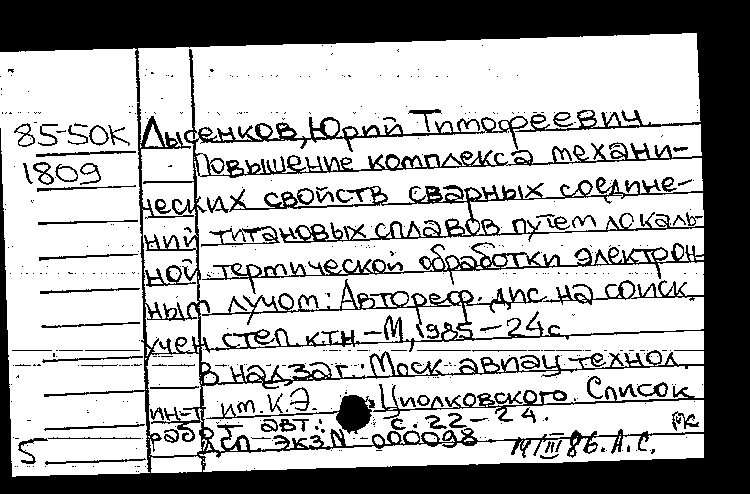 85-50К Лысенков, Юрий Тимофеевич.
1809 Повышение комплекса механи-
ческих свойств сварных соедине-
ний титановых сплавов путем локаль-
ной термической обработки электрон-
ным лучом: Автореф. дис. на соиск.
учен. степ. к.т.н. - М., 1985 - 24 с.
В надзаг.: Моск. авиац. технол.
ин-т им. К.Э. Циолковского. Список
работ авт.: с. 22-24.
ДСП. ЭКЗ.N 000098 МК
5 14/III 86. А.С.